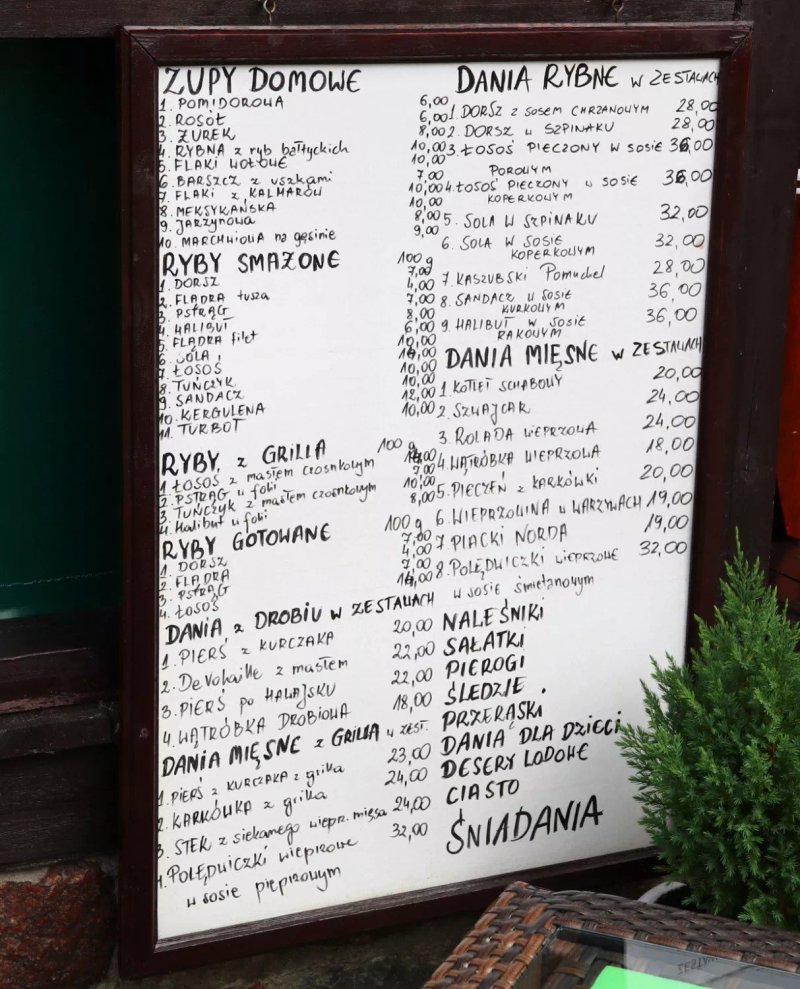 ZUPY DOMOWE
1. POMIDOROWA 6,00
2. ROSÓŁ 6,00
3. ŻUREK 8,00
4. RYBNA z ryb bałtyckich 10,00
5. FLAKI WOŁOWE 10,00
6. BARSZCZ z uszkami 7,00
7. FLAKI z KALMARÓW 10,00
8. MEKSYKAŃSKA 10,00
9. JARZYNOWA 8,00
10. MARCHWIOWA na gęsinie 9,00
RYBY SMAŻONE 100 g
1. DORSZ 7,00
2. FLĄDRA tusza 4,00
3. PSTRĄG 7,00
4. HALIBUT 8,00
5. FLĄDRA filet 6,00
6. SOLA 10,00
7. ŁOSOŚ
8. TUŃCZYK 10,00
9. SANDACZ 10,00
10. KERGULENA 12,00
11. TURBOT 10,00
RYBY z GRILLA 100 g
1 ŁOSOŚ z masłem czosnkowym
2. PSTRĄG w folii 7,00
3. TUŃCZYK z masłem czosnkowym 10,00
4. Halibut w folii 8,00
RYBY GOTOWANE 100 g
1. DORSZ 7,00
2. FLĄDRA 4,00
3. PSTRĄG 7,00
4. ŁOSOŚ
DANIA z DROBIU W ZESTAWACH
1. PIERŚ z KURCZAKA 20,00
2. DeVolaille z masłem 22,00
3. PIERŚ po HAWAJSKU 22,00
4. WĄTRÓBKA DROBIOWA 18,00
DANIA MIĘSNE z GRILLA w zest.
1. PIERŚ z KURCZAKA z grilla 23,00
2. KARKÓWKA z grilla 24,00
3. STEK z siekanego wieprz. mięsa 24,00
4. POLĘDWICZKI wieprzowe 32,00
w sosie pieprzowym
DANIA RYBNE W ZESTAWACH
1. DORSZ z sosem CHRZANOWYM 28,00
2. DORSZ w SZPINAKU 28,00
3. ŁOSOŚ PIECZONY W SOSIE 36,00
POROWYM
4. ŁOSOŚ PIECZONY w SOSIE 36,00
KOPERKOWYM
5. SOLA W SZPINAKU 32,00
6. SOLA W SOSIE 32,00
KOPERKOWYM
7. KASZUBSKI Pomuchel 28,00
8. SANDACZ w SOSIE 36,00
KURKOWYM
9. HALIBUT W SOSIE 36,00
RAKOWYM
DANIA MIĘSNE W ZESTAWACH
1. KOTLET SCHABOWY 20,00
2. SZWAJCAR 24,00
3. ROLADA WIEPRZOWA 24,00
4. WĄTRÓBKA WIEPRZOWA 18,00
5. PIECZEŃ z KARKÓWKI 20,00
6. WIEPRZOWINA w WARZYWACH 19,00
7. PLACKI NORDA 19,00
8. POLĘDWICZKI WIEPRZOWE 32,00
w sosie śmietanowym
NALEŚNIKI
SAŁATKI
PIEROGI
ŚLEDZIE
PRZEKĄSKI
DANIA DLA DZIECI
DESERY LODOWE
CIASTO
ŚNIADANIA